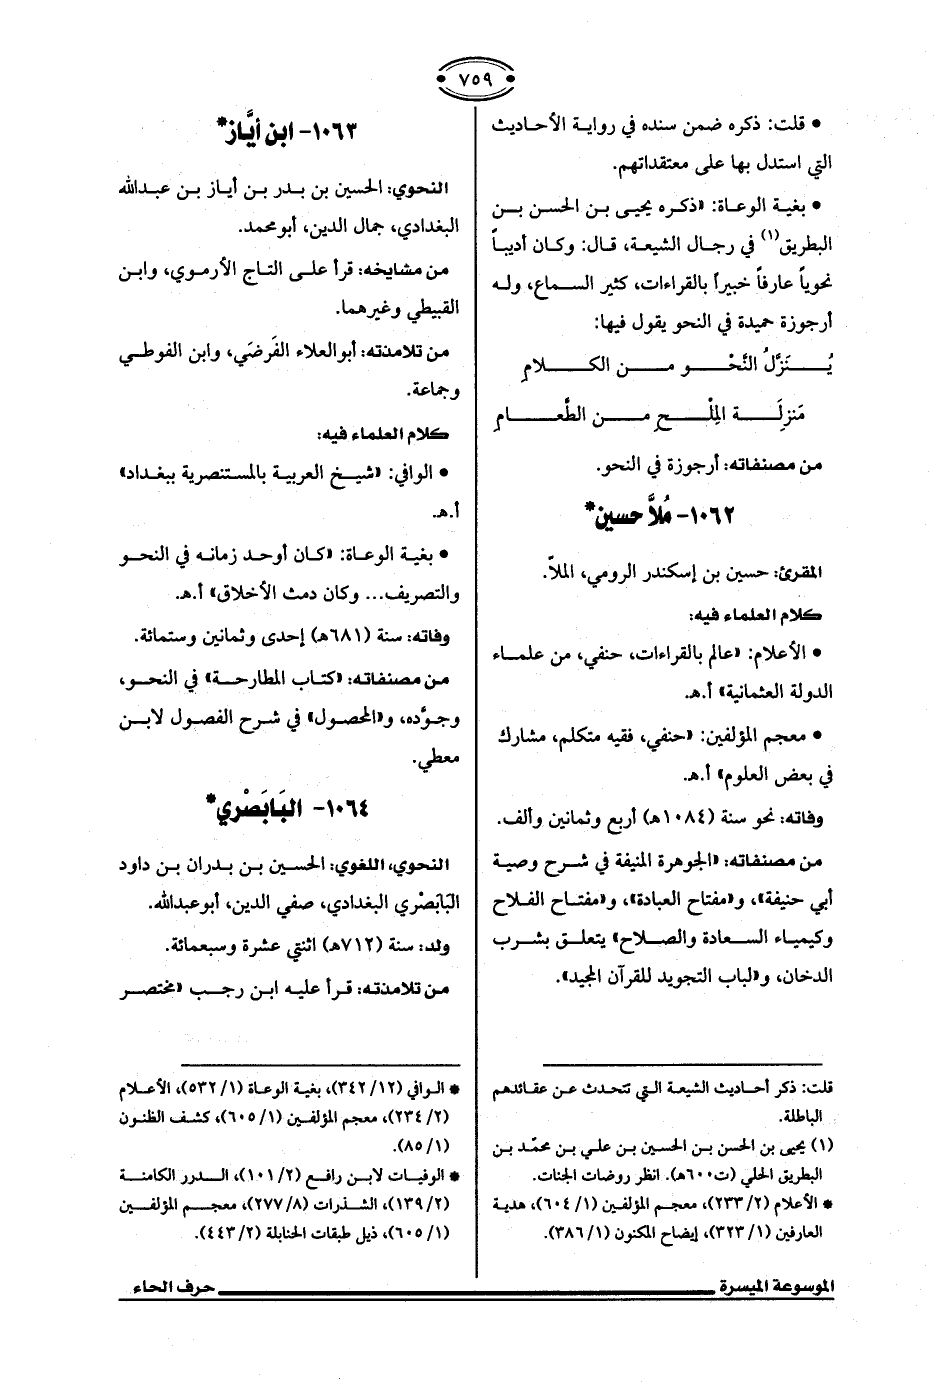 ٧٥٩
• قلت: ذكره ضمن سنده في رواية الأحاديث
التي استدل بها على معتقداتهم.
• بغية الوعاة: «ذكره يحيى بن الحسن بن
البطريق(١) في رجال الشيعة، قال: وكان أديباً
نحوياً عارفاً خبيراً بالقراءات، كثير السماع، وله
أرجوزة حميدة في النحو يقول فيها:
يُنَزَّلُ النَّحْو من الكلامِ
مَنزِلَة المِلْحِ من الطَّعامِ
من مصنفاته: أرجوزة في النحو.
١٠٦٢- مُلاَّ حسين*
المقرئ: حسين بن إسكندر الرومي، الملاّ.
كلام العلماء فيه:
• الأعلام: «عالم بالقراءات، حنفي، من علماء
الدولة العثمانية» أ.هـ.
• معجم المؤلفين: «حنفي، فقيه متكلم، مشارك
في بعض العلوم» أ.هـ.
وفاته: نحو سنة (١٠٨٤هـ) أربع وثمانين وألف.
من مصنفاته: «الجوهرة المنيفة في شرح وصية
أبي حنيفة»، و«مفتاح العبادة»، و«مفتاح الفلاح
وكيمياء السعادة والصلاح» يتعلق بشرب
الدخان، و«لباب التجويد للقرآن المجيد».
قلت: ذكر أحاديث الشيعة التي تتحدث عن عقائدهم
الباطلة.
(١) يحيى بن الحسن بن الحسين بن علي بن محمّد بن
البطريق الحلي (ت٦٠٠هـ). انظر روضات الجنات.
* الأعلام (٢/ ٢٣٣)، معجم المؤلفين (١/ ٦٠٤)، هدية
العارفين (١/ ٣٢٣)، إيضاح المكنون (١/ ٣٨٦).
١٠٦٣- ابن أيَّاز*
النحوي: الحسين بن بدر بن أياز بن عبدالله
البغدادي، جمال الدين، أبو محمد.
من مشايخه: قرأ على التاج الأرموي، وابن
القبيطي وغيرهما.
من تلامذته: أبو العلاء الفَرَضي، وابن الفوطي
وجماعة.
كلام العلماء فيه:
• الوافي: «شيخ العربية بالمستنصرية ببغداد»
أ.هـ.
• بغية الوعاة: «كان أوحد زمانه في النحو
والتصريف... وكان دمث الأخلاق» أ.هـ.
وفاته: سنة (٦٨١هـ) إحدى وثمانين وستمائة.
من مصنفاته: «كتاب المطارحة» في النحو،
وجوَّده، و«المحصول» في شرح الفصول لابن
معطي.
١٠٦٤- البَابَصْري*
النحوي، اللغوي: الحسين بن بدران بن داود
البَابَصْري البغدادي، صفي الدين، أبو عبدالله.
ولد: سنة (٧١٢هـ) اثنتي عشرة وسبعمائة.
من تلامذته: قرأ عليه ابن رجب «مختصر
* الوافي (١٢/ ٣٤٢)، بغية الوعاة (١/ ٥٣٢)، الأعلام
(٢/ ٢٣٤)، معجم المؤلفين (١/ ٦٠٥)، كشف الظنون
(١/ ٨٥).
* الوفيات لابن رافع (٢/ ١٠١)، الدرر الكامنة
(٢/ ١٣٩)، الشذرات (٨/ ٢٧٧)، معجم المؤلفين
(١/ ٦٠٥)، ذيل طبقات الحنابلة (٢/ ٤٤٣).
الموسوعة الميسرة
حرف الحاء